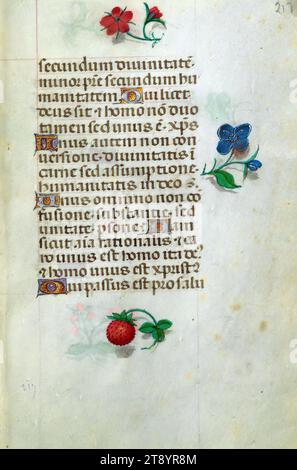 217
secundum divinitatē·
minor p̄re secundum hu
manitatem Qui licet
deus sit & homo non duo
tamen sed unus ē xp̄s
Unus autem non con
versione divinitatis ī
carne sed assumptione
humanitatis in deo
Unus omnino non cō
fusione substantie sed
unitate psone Nam
sicut aīa rationalis & ca
ro unus est homo ita de⁹
& homo unus est xp̄ist⁹
Qui passus est pro salu
217
alamy
Image ID: 2T8YR8M
www.alamy.com